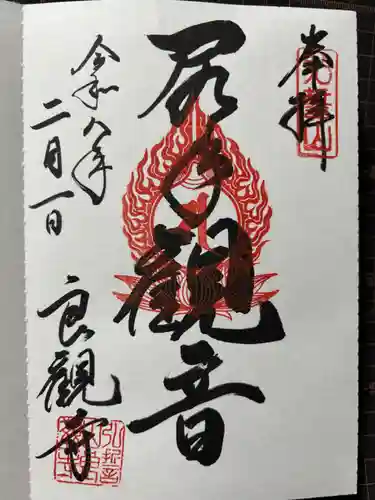 奉拝
千手観音
令和八年
二月一日
良観寺